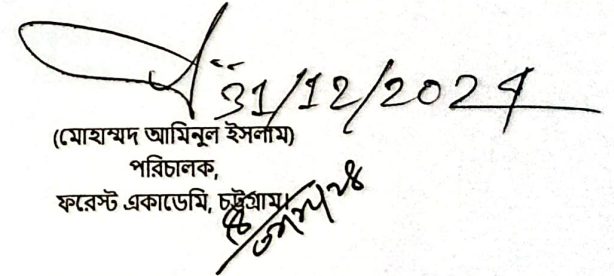 31/12/2024
(মোহাম্মদ আমিনুল ইসলাম)
পরিচালক,
ফরেস্ট একাডেমি, চট্টগ্রাম।